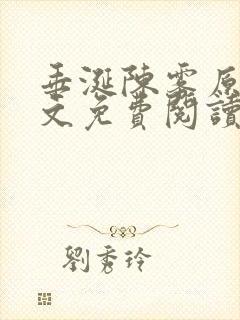 垂涎陳雾原
文免費閱讀
劉秀玲